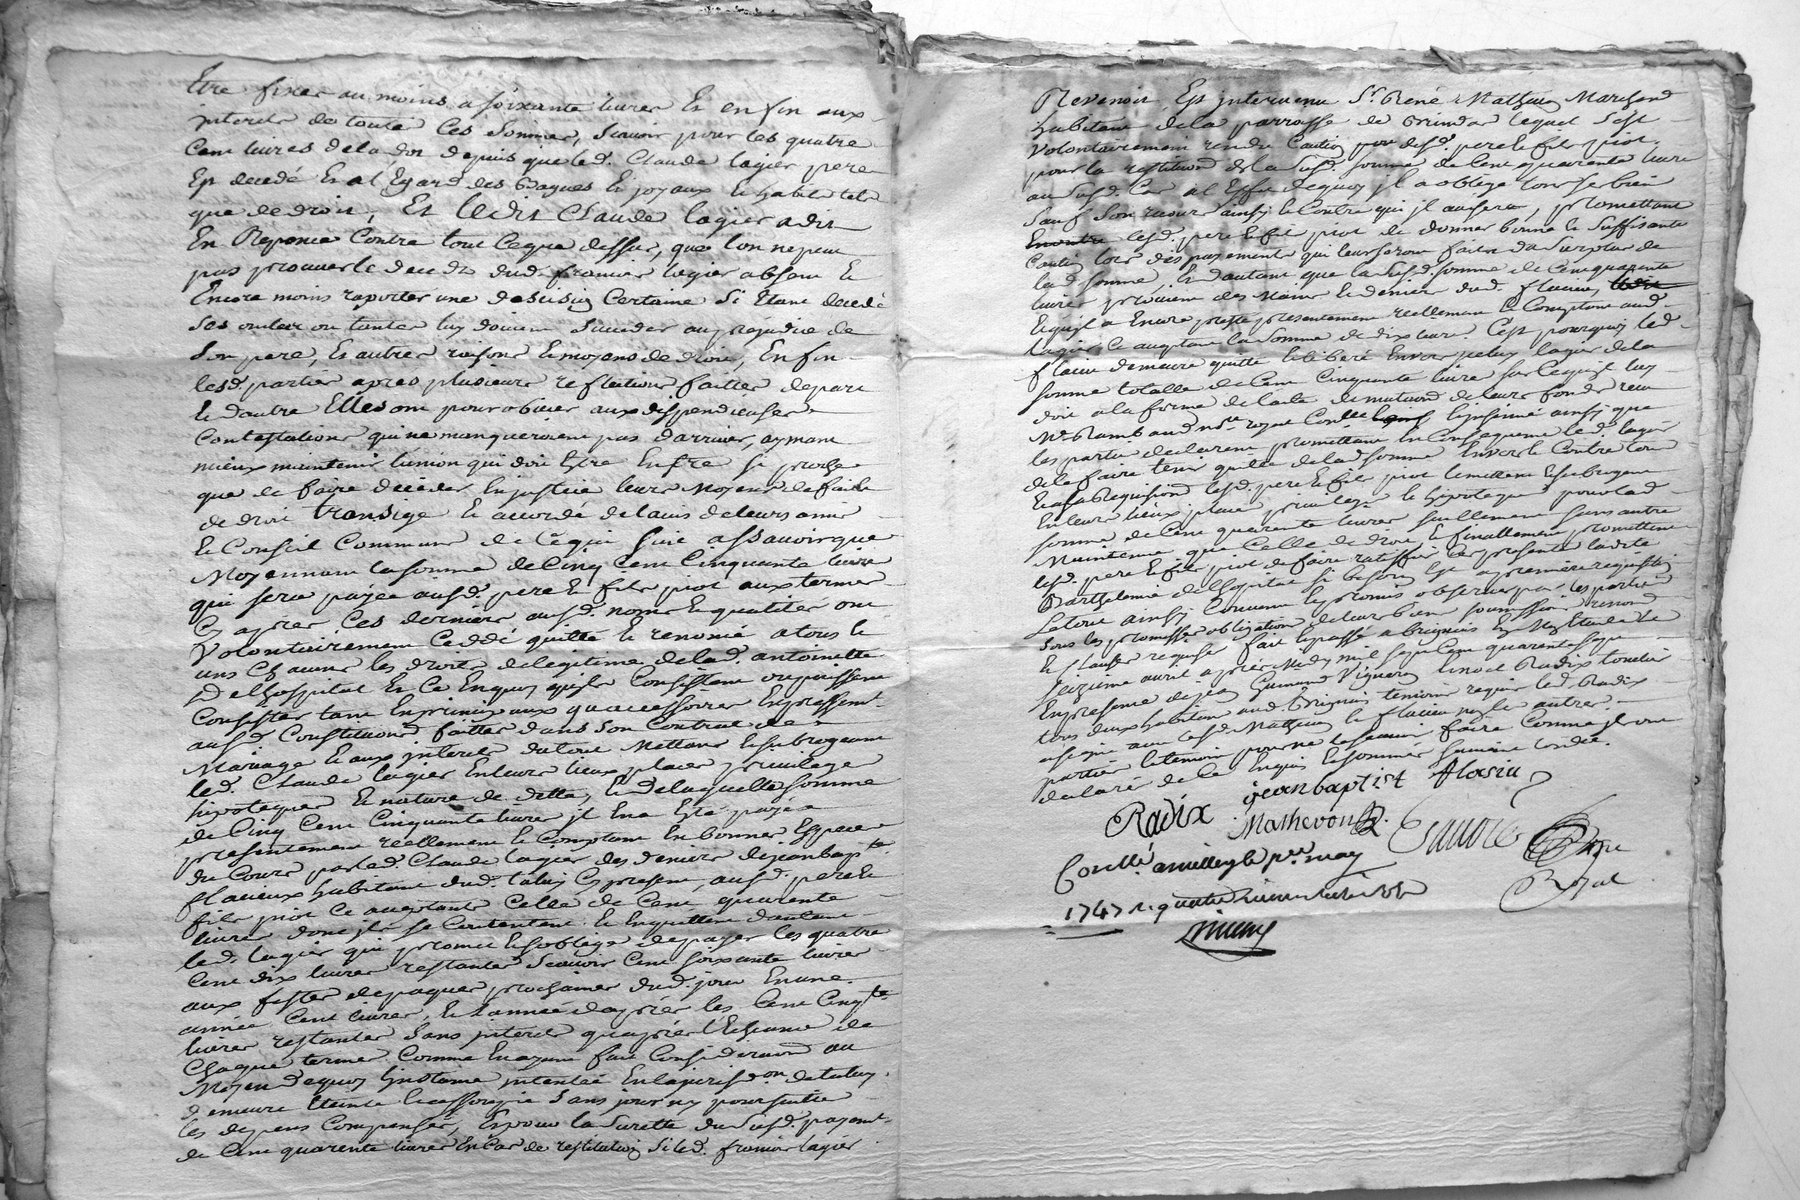 Etre fixés au moins a soixante livres Et enfin aux
jnterets de toutes ces sommes, scavoir pour les quatre
Cent livres de la dot depuis que led. Claude lagier pere
Est decedé Et al Egard des Bagues Et joyaux Et habits tels
que de droit, Et ledit Claude lagier a dit
En Reponce Contre tout ce que dessus, que lon ne peut
pas prouver le deceds dud. francois lagier absent Et
Encore moins raporter une decision Certaine si Etant decedé
ses oncles ou tantes luy doivent succeder au prejudice de
son pere, Et autres raisons Et moyens de droit, Enfin
lesd. parties apres plusieurs reflections faittes de part
Et dautre Elles ont pour obvier aux dispendieuses
Contestations qui ne manqueroient pas darriver, aymant
mieux maintenir lunion qui doit Estre Entre si proches
que de faire decider En justice leurs moyens de fait Et
de droit transigé Et accordé de lavis de leurs amis
Et Conseil Commun de Ce qui suit assavoir que
Moyennant la somme de Cinq Cent Cinquante livres
qui sera payée ausd. pere Et fils piot aux termes
Cy apres Ces derniers ausd. noms Et qualites ont
Volontairement Ceddé quitté Et renoncé a tous Et
uns Chacuns les droits de legitime de lad. antoinette
de lhospital Et Ce En quoy quils Consistent ou puissent
Consister tant En principaux quaccessoires Expressement
ausd. Constitutions faittes dans son Contrat de
Mariage Et aux jnterets du tout Mettant Et subrogeant
led. Claude lagier En leurs lieux places privilege
hipoteques Et nature de dette, Et de laquelle somme
de Cinq Cent Cinquante livres jl En a Esté payé
presentement reellement Et Comptant En bonnes Especes
du Cours par led. Claude lagier des deniers de jean bapte
flacieux habitant dud. taluy Cy present, ausd. pere Et
fils piot Ce acceptants Celle de Cent quarante
livres dont jls se Contentent Et En quittent dautant
led. lagier qui promet Et soblige de payer les quatre
Cent dix livres restantes scavoir Cent soixante livres
aux festes de paques prochaines dud. jour En une
année Cent livres, Et lannée dapres les Cent Cinqte
livres restantes sans jnterets quapres lEcheance de
Chaque terme Comme En ayant fait Consideration au
Moyen de quoy linstance jntentée En la jurisdon. de taluy
demeure Eteinte Et assoupie sans pour ny poursuitte
les depens Compensés, Et pour la surette du susd. payemt.
de Cent quarante livres En Cas de restitution si led. francois lagier
Revenoit Est jntervenu Sr. René Mathevon Marchand
habitant de la parroisse de Brindas lequel sest
Volontairement rendu Caution pour lesd. pere Et fils piot
pour la restitution de la susd. somme de Cent quarante livres
au susd. Cas al Effet de quoy jl a obligé tous ses biens
sauf son recours ainsy Et Contre qui jl avisera, promettant
lesd. pere Et fils piot de donner bonne Et suffisante
Caution lors des payements qui leur seront faits du surplus de
lad. somme, Et dautant que la susd. somme de Cent quarante
livres provient des Mains Et deniers dud. flacieu,
Et quil a Encore presté presentement reellement Et Comptant aud.
lagier Ce acceptant la somme de dix livres Cest pourquoy led.
flacieu demeure quitte Et liberé Envers iceluy lagier de la
somme totalle de Cent Cinquante livres sur Ce quil luy
doit a la forme de lacte de mutation de leurs fonds receu
Me. Rambaud nore. royal
les parties declarent promettant En Consequence led. lagier
de le faire tenir quitte de lad. somme Envers Et Contre tous
Et a sa Requisition lesd. pere Et fils piot le mettent Et subrogent
En leurs lieux place privilege Et hypoteque pour lad.
somme de Cent quarante livres seullement sans autre
Maintenue que Celle de droit, Et finallement promettent
lesd. pere Et fils piot de faire ratiffier Ces presentes a ladite
Barthelemie de lhopital si besoin Est a premiere requisition
Le tout ainsy Convenu Et promis observer par les parties
sous les promesses obligations de leurs biens soumissions renonons.
Et Clauses requises fait Et passé a Brignais En mon Etude Le
seizieme avril apres Midy mil sept Cent quarante sept
En presence de jean Guinand Vigneron Et noel Radix tonelier
tous deux habitans aud. Brignais temoins requis led. Radix
a signé avec lesd. Mathevon Et flacieu non les autres
parties Et temoin pour ne le scavoir faire Comme jls ont
declaré de Ce Enquis Et sommés
Radix
jean baptist flasiu
Mathevon
Royal
Conlle. a millery le pre. may
1747